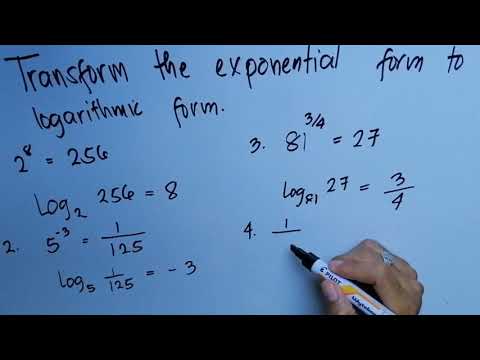 Transform the exponential form to
logarithmic form.
2⁸ = 256
log₂ 256 = 8
2. 5⁻³ = 1/125
log₅ 1/125 = -3
3. 81^(3/4) = 27
log₈₁ 27 = 3/4
4. 1/
PILOT